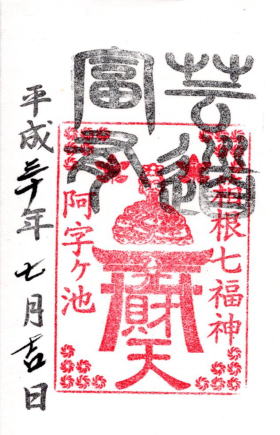 芸道
富
箱根七福神
弁財天
阿字ヶ池
平成三十年七月吉日